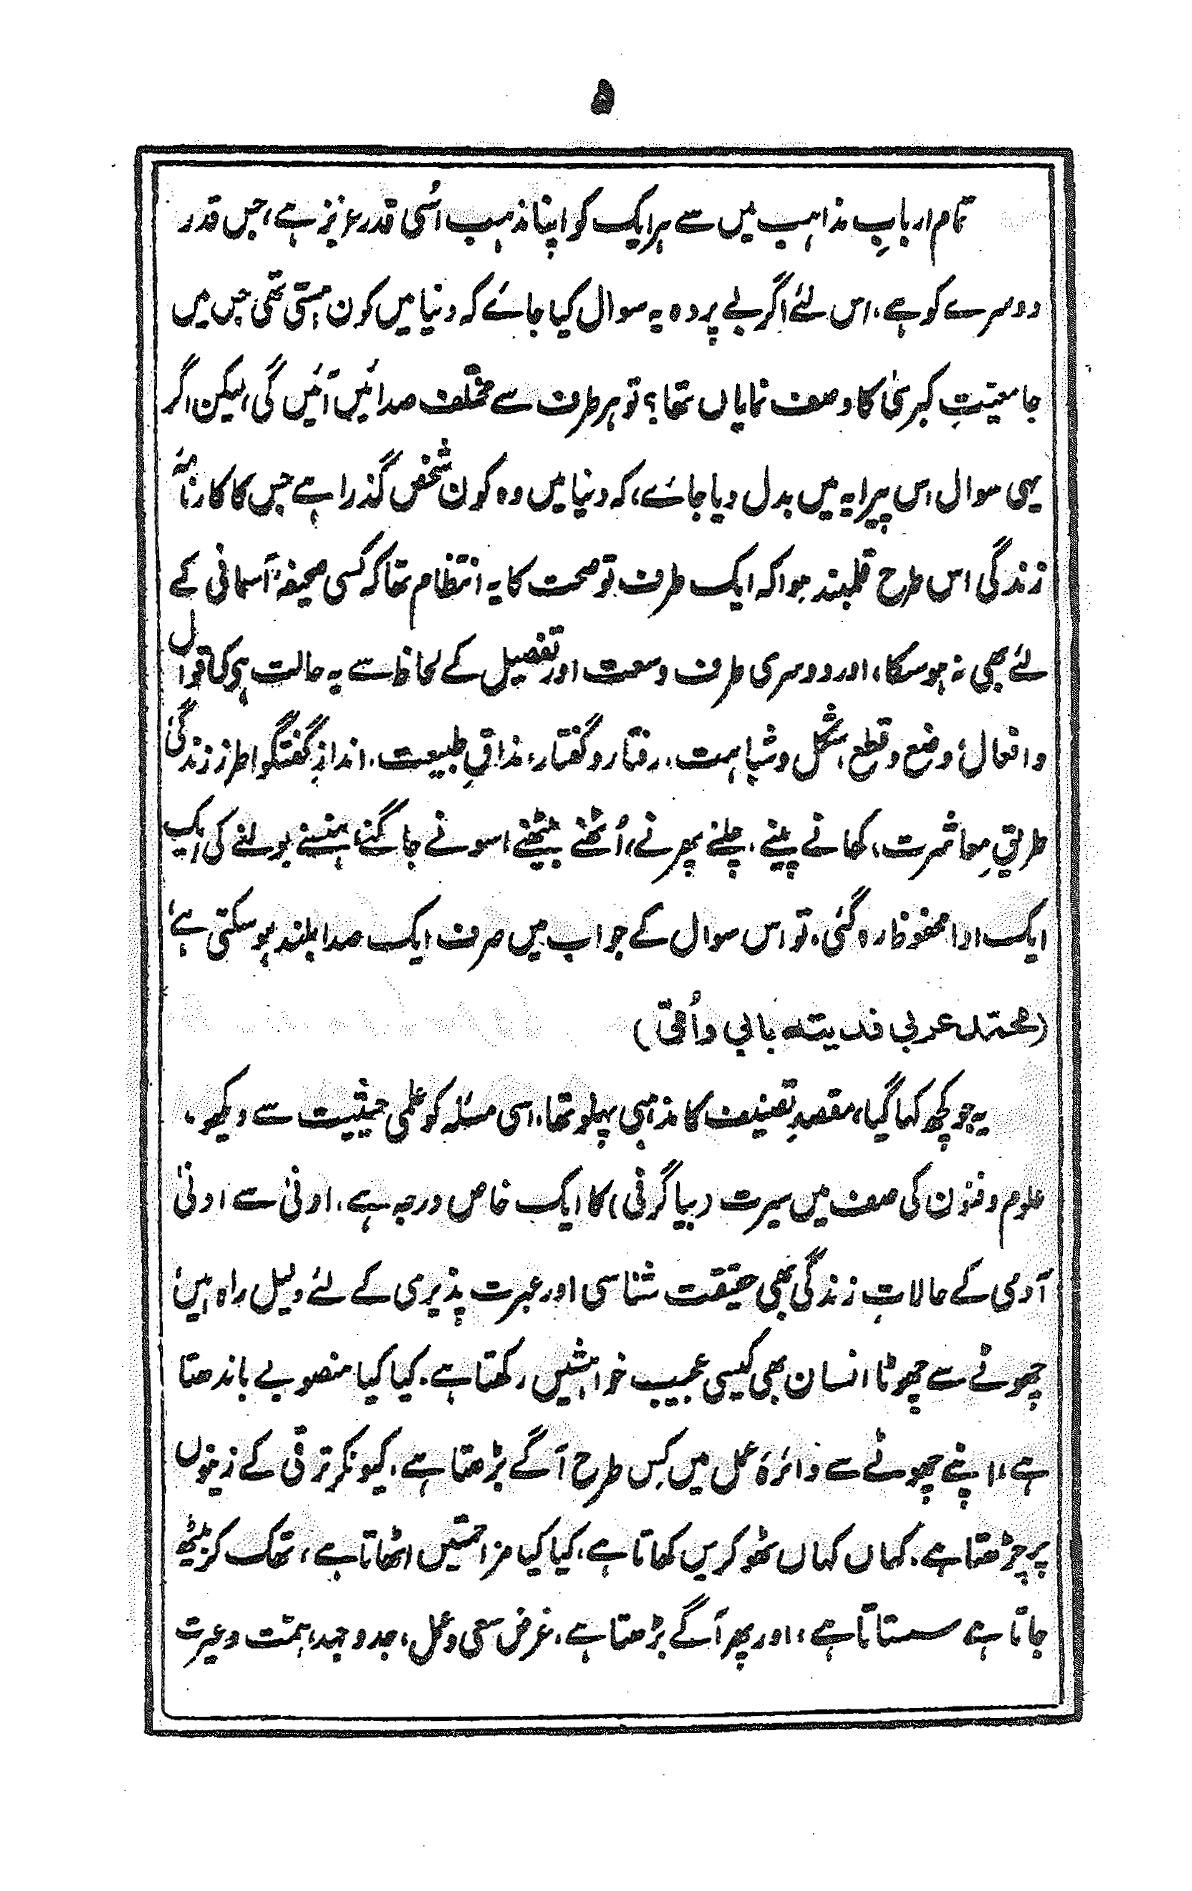 ۵
تمام اربابِ مذاہب میں سے ہر ایک کو اپنا مذہب اُسی قدر عزیز ہے، جس قدر
دوسرے کو ہے، اس لئے اگر بے پردہ یہ سوال کیا جائے کہ دنیا میں کون ہستی تھی جس میں
جامعیتِ کبریٰ کا وصف نمایاں تھا؟ تو ہر طرف سے مختلف صدائیں آئیں گی، لیکن اگر
یہی سوال اس پیرایہ میں بدل دیا جائے، کہ دنیا میں وہ کون شخص گذرا ہے جس کا کارنامۂ
زندگی اس طرح قلمبند ہوا کہ ایک طرف تو صحت کا یہ انتظام تھا کہ کسی صحیفۂ آسمانی کے
لئے بھی نہ ہو سکا، اور دوسری طرف وسعت اور تفصیل کے لحاظ سے یہ حالت ہی کی اقوال
وافعال، وضع وقطع، شکل وشباہت، رفتار وگفتار، مذاقِ طبیعت، اندازِ گفتگو، طرزِ زندگی،
طریقِ معاشرت، کھانے پینے، چلنے پھرنے، اُٹھنے بیٹھنے، سونے جاگنے، ہنسنے بولنے کی ایک
ایک ادا محفوظ رہ گئی، تو اس سوال کے جواب میں صرف ایک صدا بلند ہو سکتی ہے،
(محمّد عربی فدیتہ بابی واُمّی)
یہ جو کچھ کہا گیا، مقصدِ تصنیف کا مذہبی پہلو تھا، اسی مسئلہ کو علمی حیثیت سے دیکھو،
علوم و فنون کی صف میں سیرت (بیاگرفی) کا ایک خاص درجہ ہے، ادنیٰ سے ادنیٰ
آدمی کے حالاتِ زندگی بھی حقیقت شناسی اور عبرت پذیری کے لئے دلیل راہ ہیں،
چھوٹے سے چھوٹا انسان بھی کیسی عجیب خواہشیں رکھتا ہے، کیا کیا منصوبے باندھتا
ہے، اپنے چھوٹے سے دائرۂ عمل میں کِس طرح آگے بڑھتا ہے، کیونکر ترقی کے زینوں
پر چڑھتا ہے، کہاں کہاں ٹھوکریں کھاتا ہے، کیا کیا مزاحمتیں اٹھاتا ہے، تھک کر بیٹھ
جاتا ہے سستاتا ہے، اور پھر آگے بڑھتا ہے، غرض سعی وعمل، جدوجہد، ہمّت وغیرت